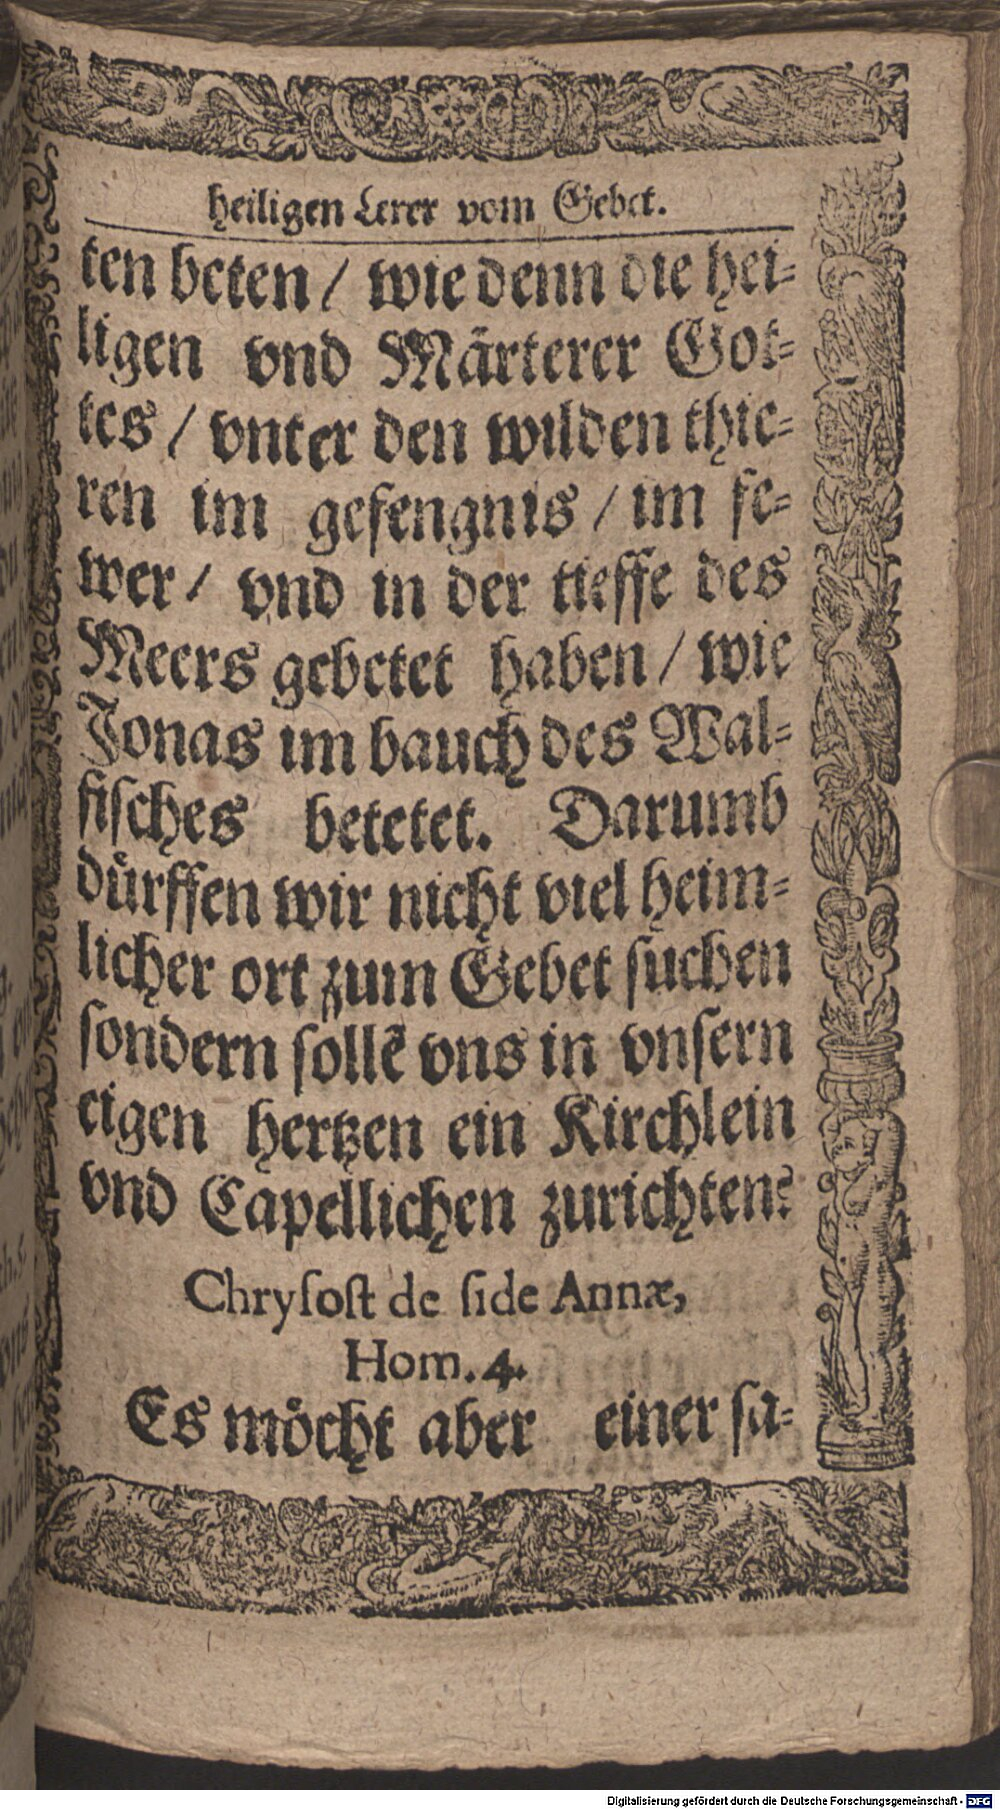 heiligen Lerer vom Gebet.
ten beten / wie denn die hei-
ligen vnd Märterer Got-
tes / vnter den wilden thie-
ren im gefengnis / im fe-
wer / vnd in der tieffe des
Meers gebetet haben / wie
Jonas im bauch des Wal-
fisches betetet. Darumb
dürffen wir nicht viel heim-
licher ort zum Gebet suchen
sondern sollẽ vns in vnsern
eigen hertzen ein Kirchlein
vnd Capellichen zurichten.
Chrysost de fide Annæ,
Hom. 4.
Es möcht aber einer sa-
Digitalisierung gefördert durch die Deutsche Forschungsgemeinschaft - DFG